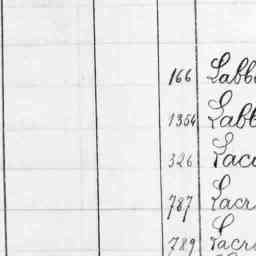 166 Labb
1364 Labb
326 Lac
787 Lacr
789 Lacr